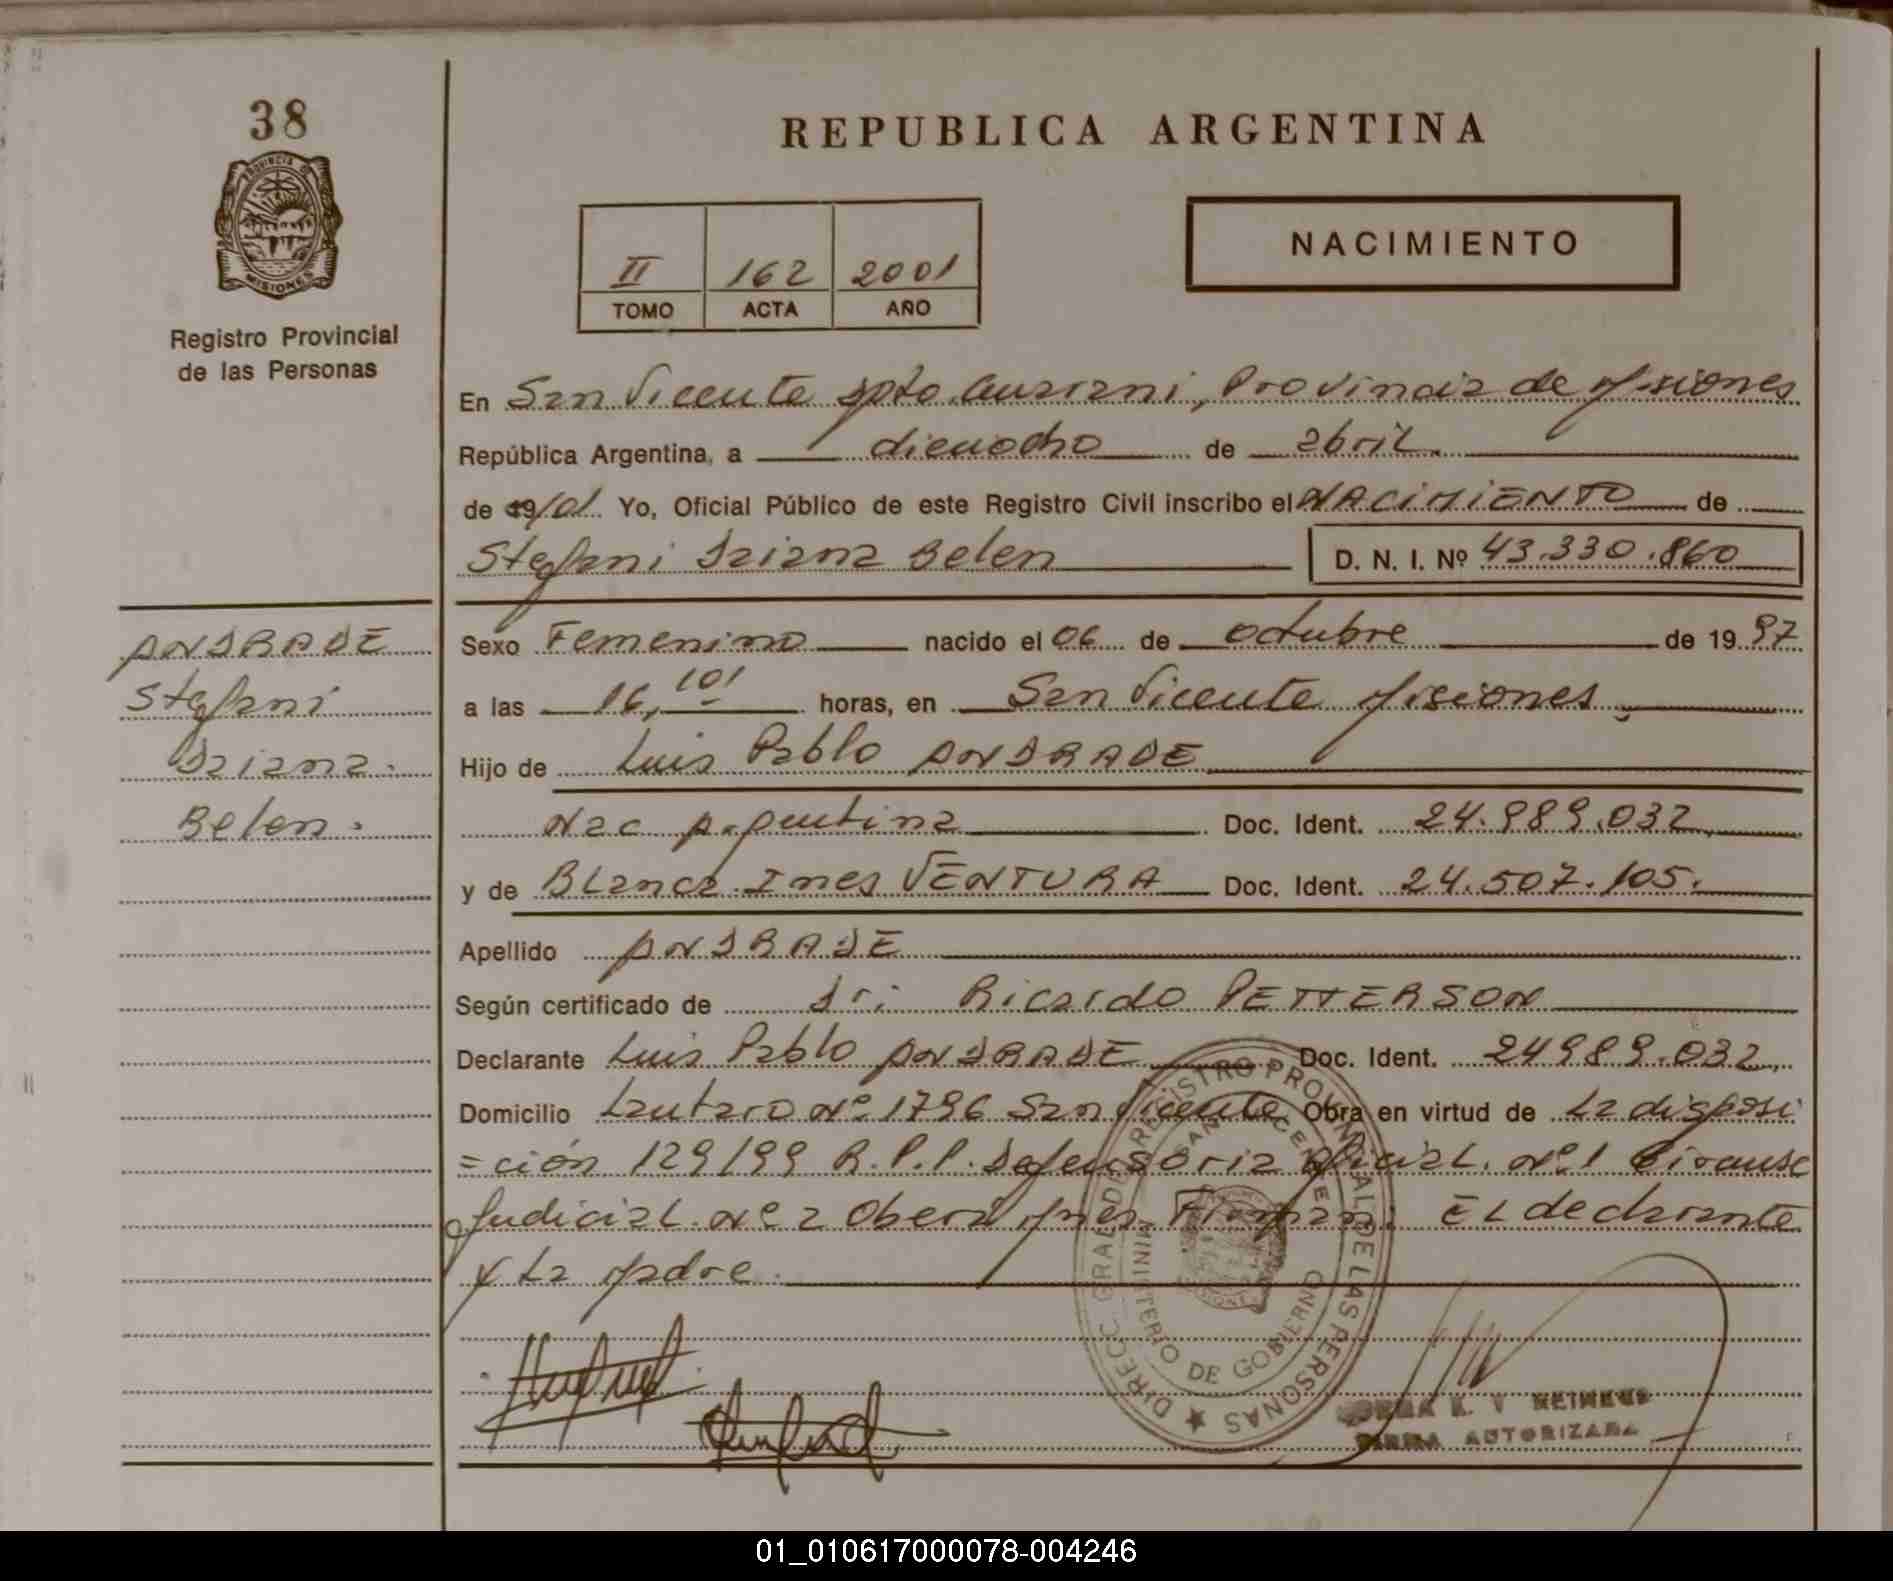 38
PROVINCIA DE
MISIONES
Registro Provincial
de las Personas
REPUBLICA ARGENTINA
II 162 2001
TOMO ACTA AÑO
NACIMIENTO
En San Vicente Dpto. Guarani, Provincia de Misiones
República Argentina, a dieciocho de abril.
de 19/01 Yo, Oficial Público de este Registro Civil inscribo el NACIMIENTO de
Stefani Daiana Belen D. N. I. Nº 43.330.860
Sexo Femenino nacido el 06 de octubre de 1997
a las 16,101 horas, en San Vicente Misiones
Hijo de Luis Pablo ANDRADE
Nac Argentina Doc. Ident. 24.989.032
y de Blanca Ines VENTURA Doc. Ident. 24.507.105.
Apellido ANDRADE
Según certificado de Dr: Ricardo PETTERSON
Declarante Luis Pablo ANDRADE Doc. Ident. 24989.032
Domicilio Lautaro Nº 1796 San Vicente Obra en virtud de La disposi
=ción 129/99 R.P.P. Defensoria Oficial Nº 1 Circunsc
Judicial Nº 2 Obera Mnes. Firman: El declarante
y La Madre.
ANDRADE
Stefani
Daiana
Belen.
DIRECC. GRAL DE REGISTRO PROVINCIAL DE LAS PERSONAS
SAN VICENTE
MINISTERIO DE GOBIERNO
MISIONES
K. V REINEUS
FIRMA AUTORIZADA
01_010617000078-004246